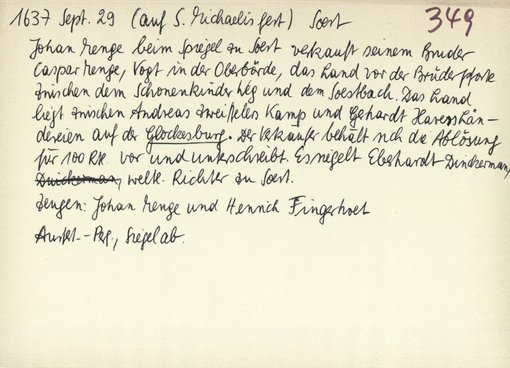 1637 Sept. 29 (auf S. Michaelis fest) Soest 349
Johan Menge beim Spiegel zu Soest verkauft seinem Bruder
Caspar Menge, Vogt in der Oberbörde, das Land vor der Brüderpforte
zwischen dem Schonenkinder Weg und dem Soestbach. Das Land
liegt zwischen Andreas Zweifelers Kamp und Gehardt Län-
dereien auf der Glockesburg. Der Verkaufer behält sich die Ablösung
für 100 Rtl. vor und unterschreibt. Es siegelt Eberhardt Dinckerman,
Duickerman, weltl. Richter zu Soest.
Zeugen: Johan Menge und Henrich Fingerhoet
Ausf.-Perg., Siegel ab.